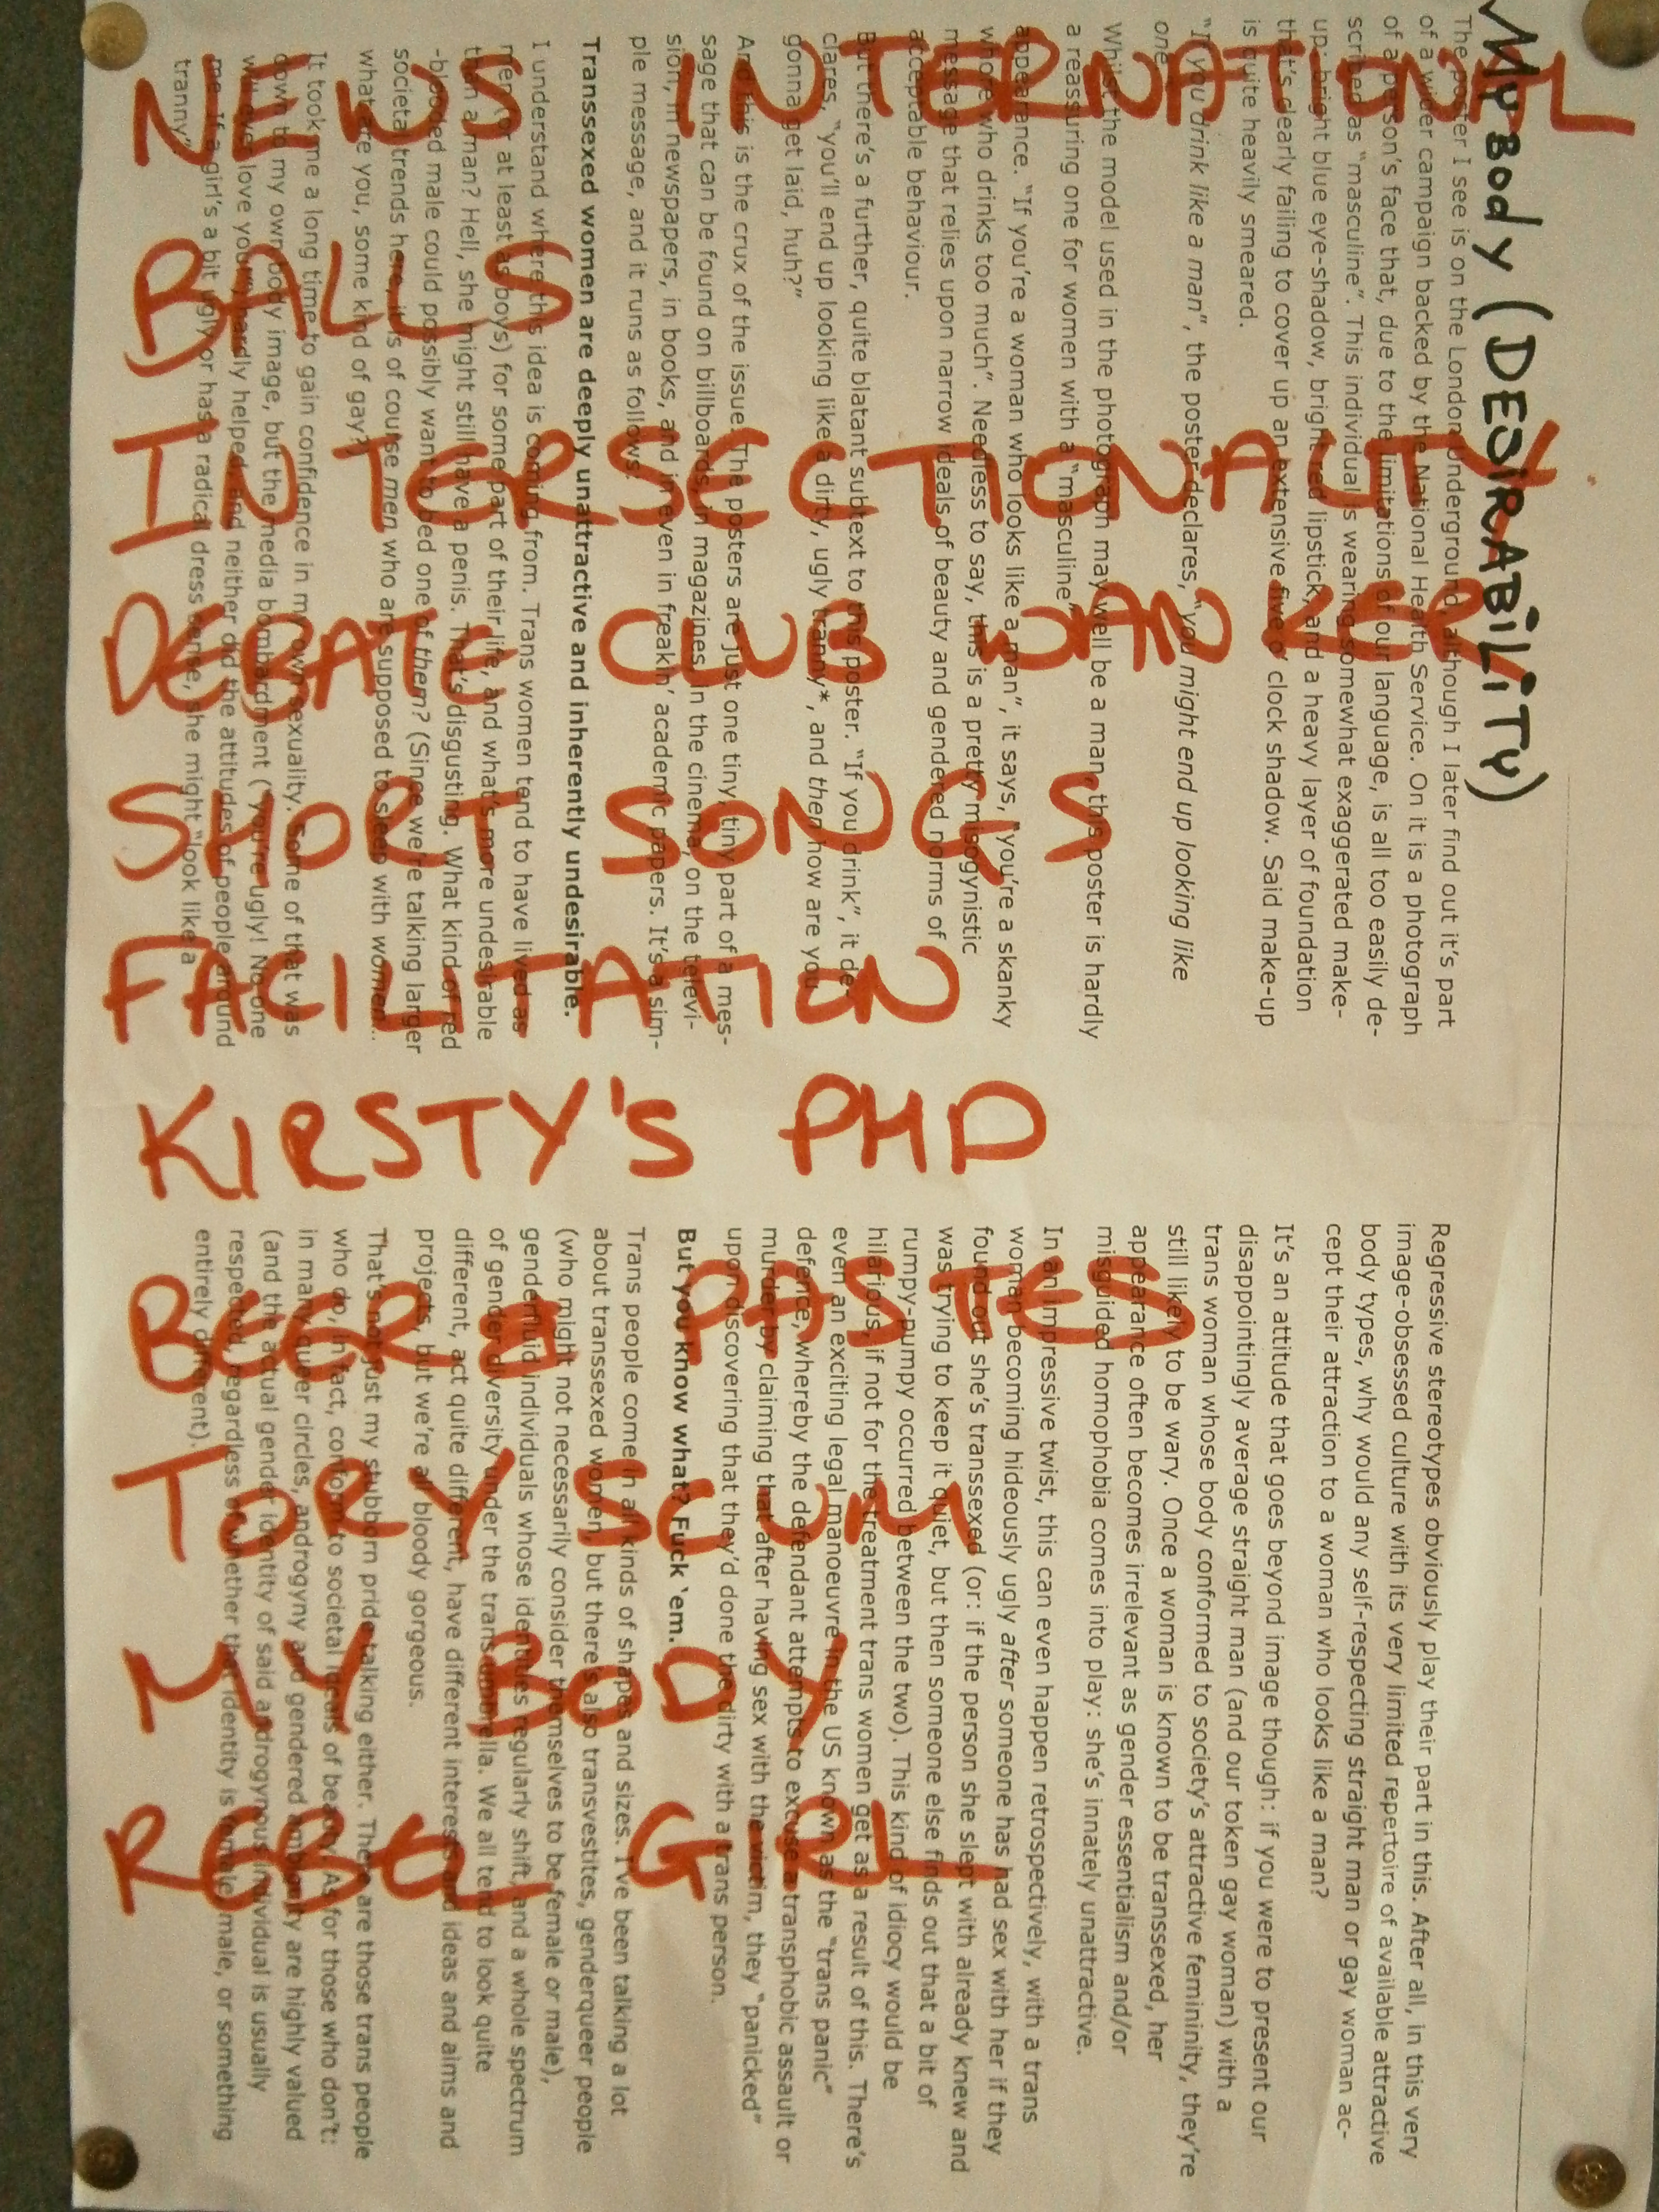 My Body (DESIRABILITY)
The poster I see is on the London Underground, although I later find out it's part
of a wider campaign backed by the National Health Service. On it is a photograph
of a person's face that, due to the limitations of our language, is all too easily de-
scribed as "masculine". This individual is wearing somewhat exaggerated make-
up: bright blue eye-shadow, bright red lipstick, and a heavy layer of foundation
that's clearly failing to cover up an extensive five o' clock shadow. Said make-up
is quite heavily smeared.
"If you drink like a man", the poster declares, "you might end up looking like
one"
Whilst the model used in the photograph may well be a man, this poster is hardly
a reassuring one for women with a "masculine"
appearance. "If you're a woman who looks like a man", it says, "you're a skanky
whore who drinks too much". Needless to say, this is a pretty misogynistic
message that relies upon narrow ideals of beauty and gendered norms of
acceptable behaviour.
But there's a further, quite blatant subtext to this poster. "If you drink", it de-
clares, "you'll end up looking like a dirty, ugly tranny*, and then how are you
gonna get laid, huh?"
And this is the crux of the issue. The posters are just one tiny, tiny part of a mes-
sage that can be found on billboards, in magazines, in the cinema, on the televi-
sion, in newspapers, in books, and in even in freakin' academic papers. It's a sim-
ple message, and it runs as follows:
Transsexed women are deeply unattractive and inherently undesirable.
I understand where this idea is coming from. Trans women tend to have lived as
men (or at least as boys) for some part of their life, and what's more undesirable
than a man? Hell, she might still have a penis. That's disgusting. What kind of red
-blooded male could possibly want to bed one of them? (Since we're talking larger
societal trends here, it is of course men who are supposed to sleep with women...
what are you, some kind of gay?)
It took me a long time to gain confidence in my own sexuality. Some of that was
down to my own body image, but the media bombardment ("you're ugly! No-one
will ever love you!") hardly helped, and neither did the attitudes of people around
me. If a girl's a bit ugly or has a radical dress sense, she might "look like a
tranny".
Regressive stereotypes obviously play their part in this. After all, in this very
image-obsessed culture with its very limited repertoire of available attractive
body types, why would any self-respecting straight man or gay woman ac-
cept their attraction to a woman who looks like a man?
It's an attitude that goes beyond image though: if you were to present our
disappointingly average straight man (and our token gay woman) with a
trans woman whose body conformed to society's attractive femininity, they're
still likely to be wary. Once a woman is known to be transsexed, her
appearance often becomes irrelevant as gender essentialism and/or
misguided homophobia comes into play: she's innately unattractive.
In an impressive twist, this can even happen retrospectively, with a trans
woman becoming hideously ugly after someone has had sex with her if they
found out she's transsexed (or: if the person she slept with already knew and
was trying to keep it quiet, but then someone else finds out that a bit of
rumpy-pumpy occurred between the two). This kind of idiocy would be
hilarious, if not for the treatment trans women get as a result of this. There's
even an exciting legal manoeuvre in the US known as the "trans panic"
defence, whereby the defendant attempts to excuse a transphobic assault or
murder by claiming that after having sex with the victim, they "panicked"
upon discovering that they'd done the dirty with a trans person.
But you know what? Fuck 'em.
Trans people come in all kinds of shapes and sizes. I've been talking a lot
about transsexed women, but there's also transvestites, genderqueer people
(who might not necessarily consider themselves to be female or male),
genderfluid individuals whose identities regularly shift, and a whole spectrum
of gender diversity under the trans umbrella. We all tend to look quite
different, act quite different, have different interests and ideas and aims and
projects, but we're all bloody gorgeous.
That's not just my stubborn pride talking either. There are those trans people
who do, in fact, conform to societal ideals of beauty. As for those who don't:
in many queer circles, androgyny and gendered ambiguity are highly valued
(and the actual gender identity of said androgynous individual is usually
respected, regardless of whether that identity is female, male, or something
entirely different).
KIRSTY'S PHD
TORY SCUM
MY BODY